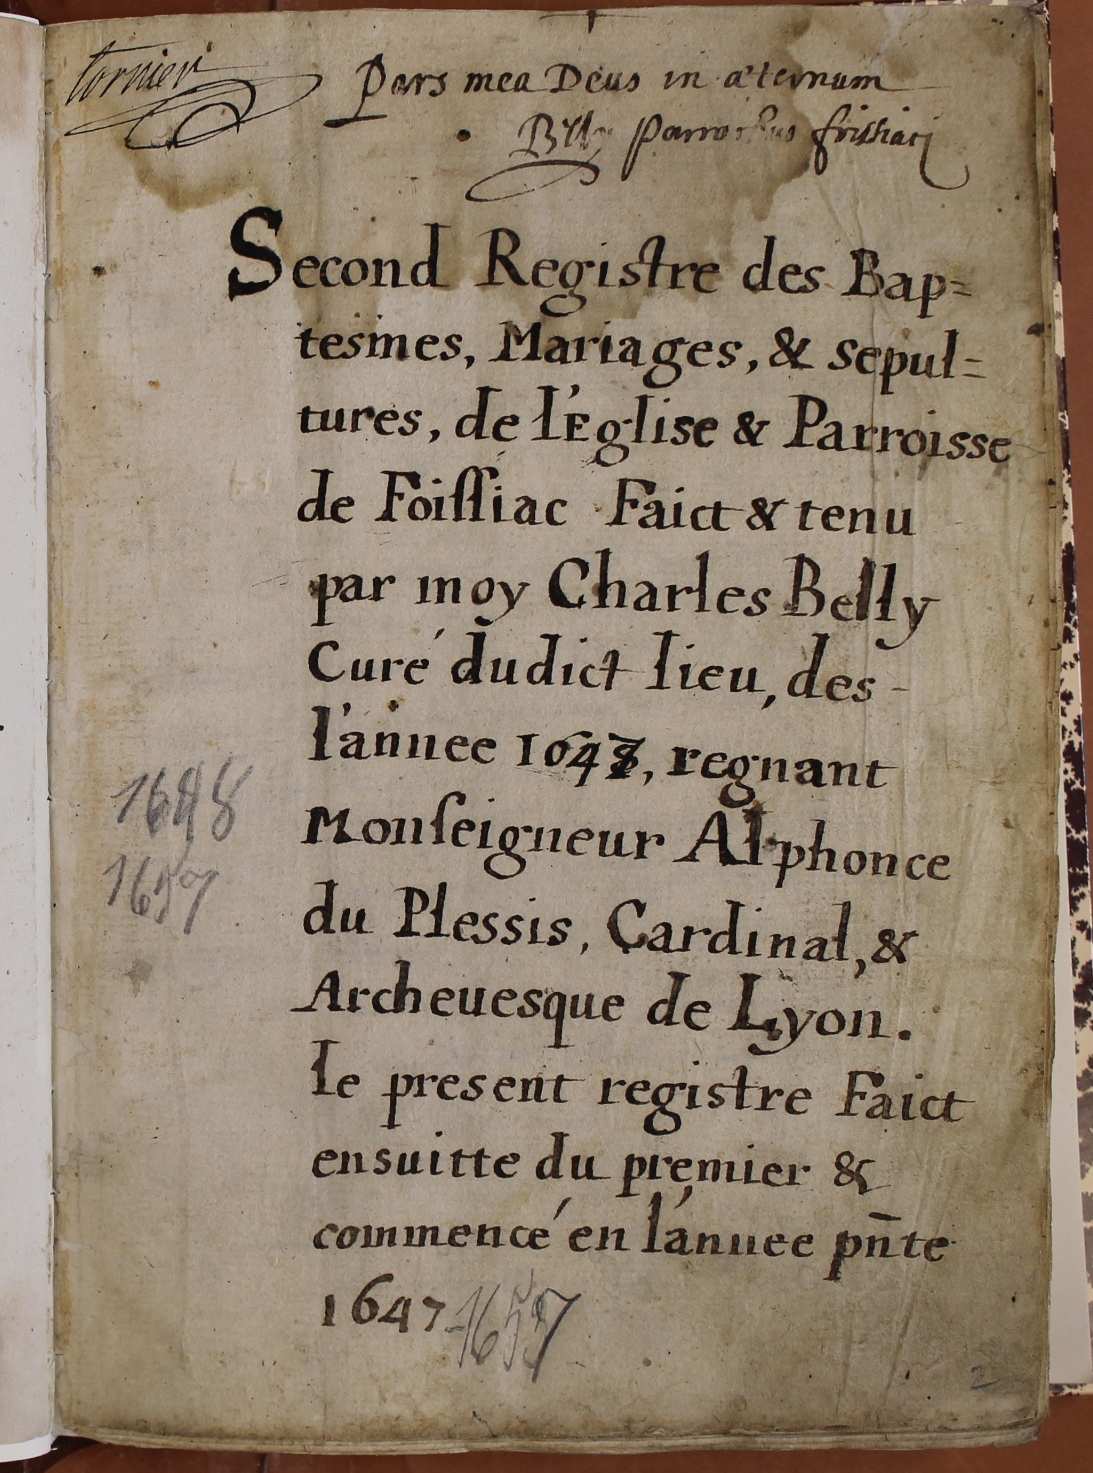 tornier
Pars mea Deus in æternum
Belly parrochus foissiaci
Second Registre des Bap=
tesmes, Mariages, & sepul=
tures, de l'Église & Parroisse
de Foissiac Faict & tenu
par moy Charles Belly
Curé dudict lieu, des
l'annee 1647, regnant
Monseigneur Alphonce
du Plessis, Cardinal, &
Archeuesque de Lyon.
le present registre Faict
ensuitte du premier &
commencé en l'annee pn̄te
1647 - 1657
1648
1657
2